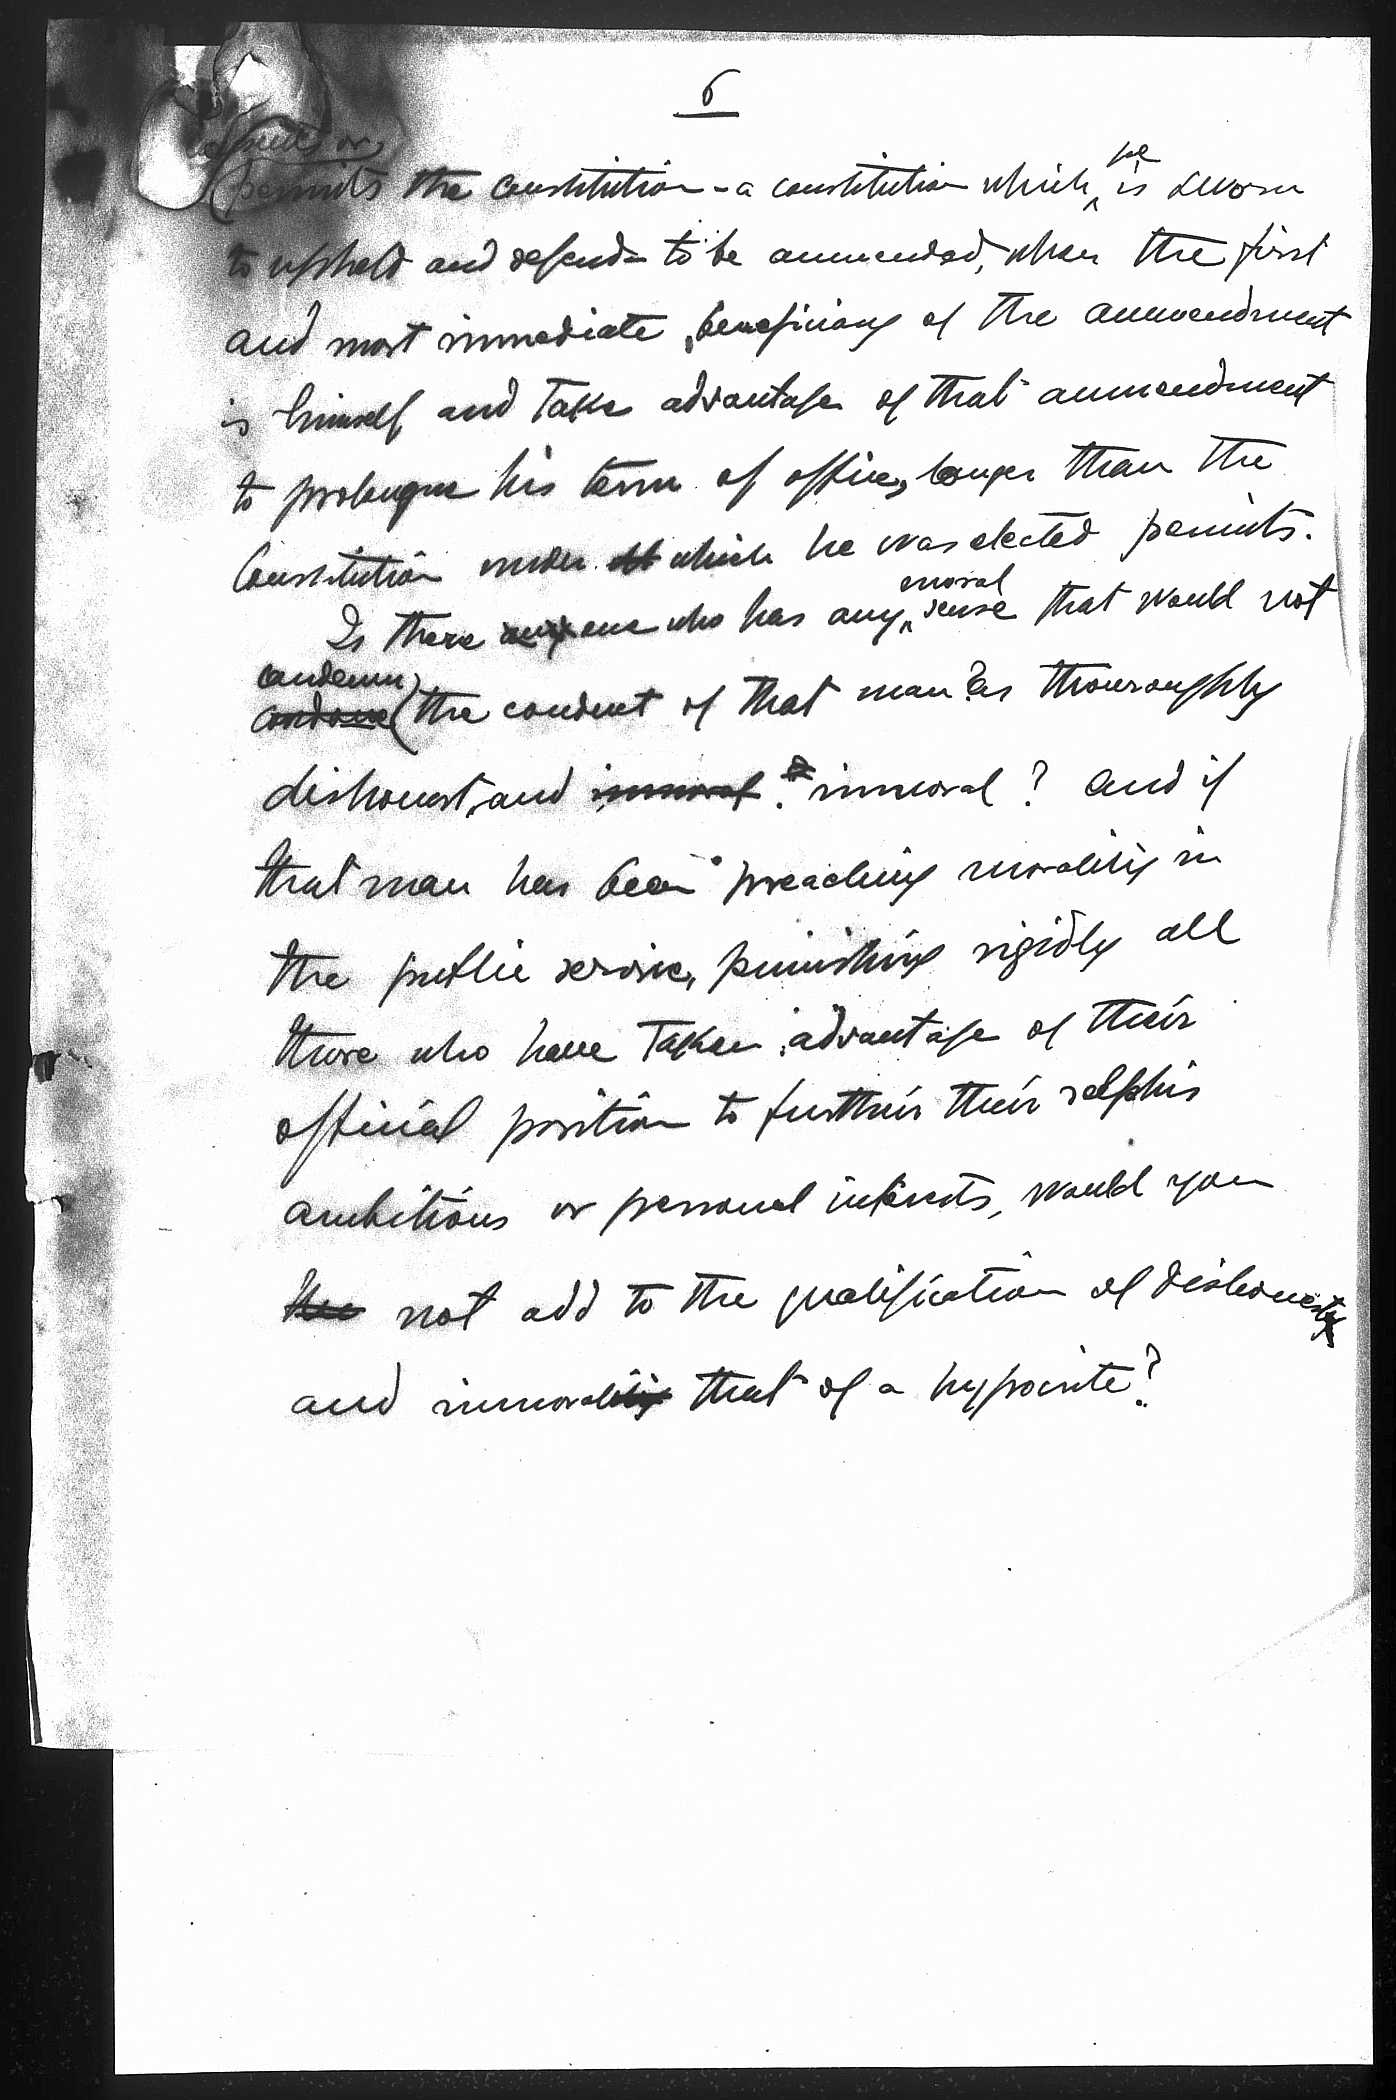 6
or
permits the constitution - a constitution which he is sworn
to uphold and defend - to be ammended, when the first
and most immediate beneficiary of the ammendment
is himself and take advantage of that ammendment
to prolongue his term of office, longer than the
Constitution under which he was elected permits.
Is there anyone who has any moral sense that would not
condemn condone the conduct of that man as thouroughly
dishonest, and immoral immoral? And if
that man has been preaching morality in
the public service, punishing rigidly all
those who have taken advantage of their
official position to furthir their selfhis
ambitions or personal interests, would you
not add to the qualification of dishonesty
and immorality that of a hypocrite?